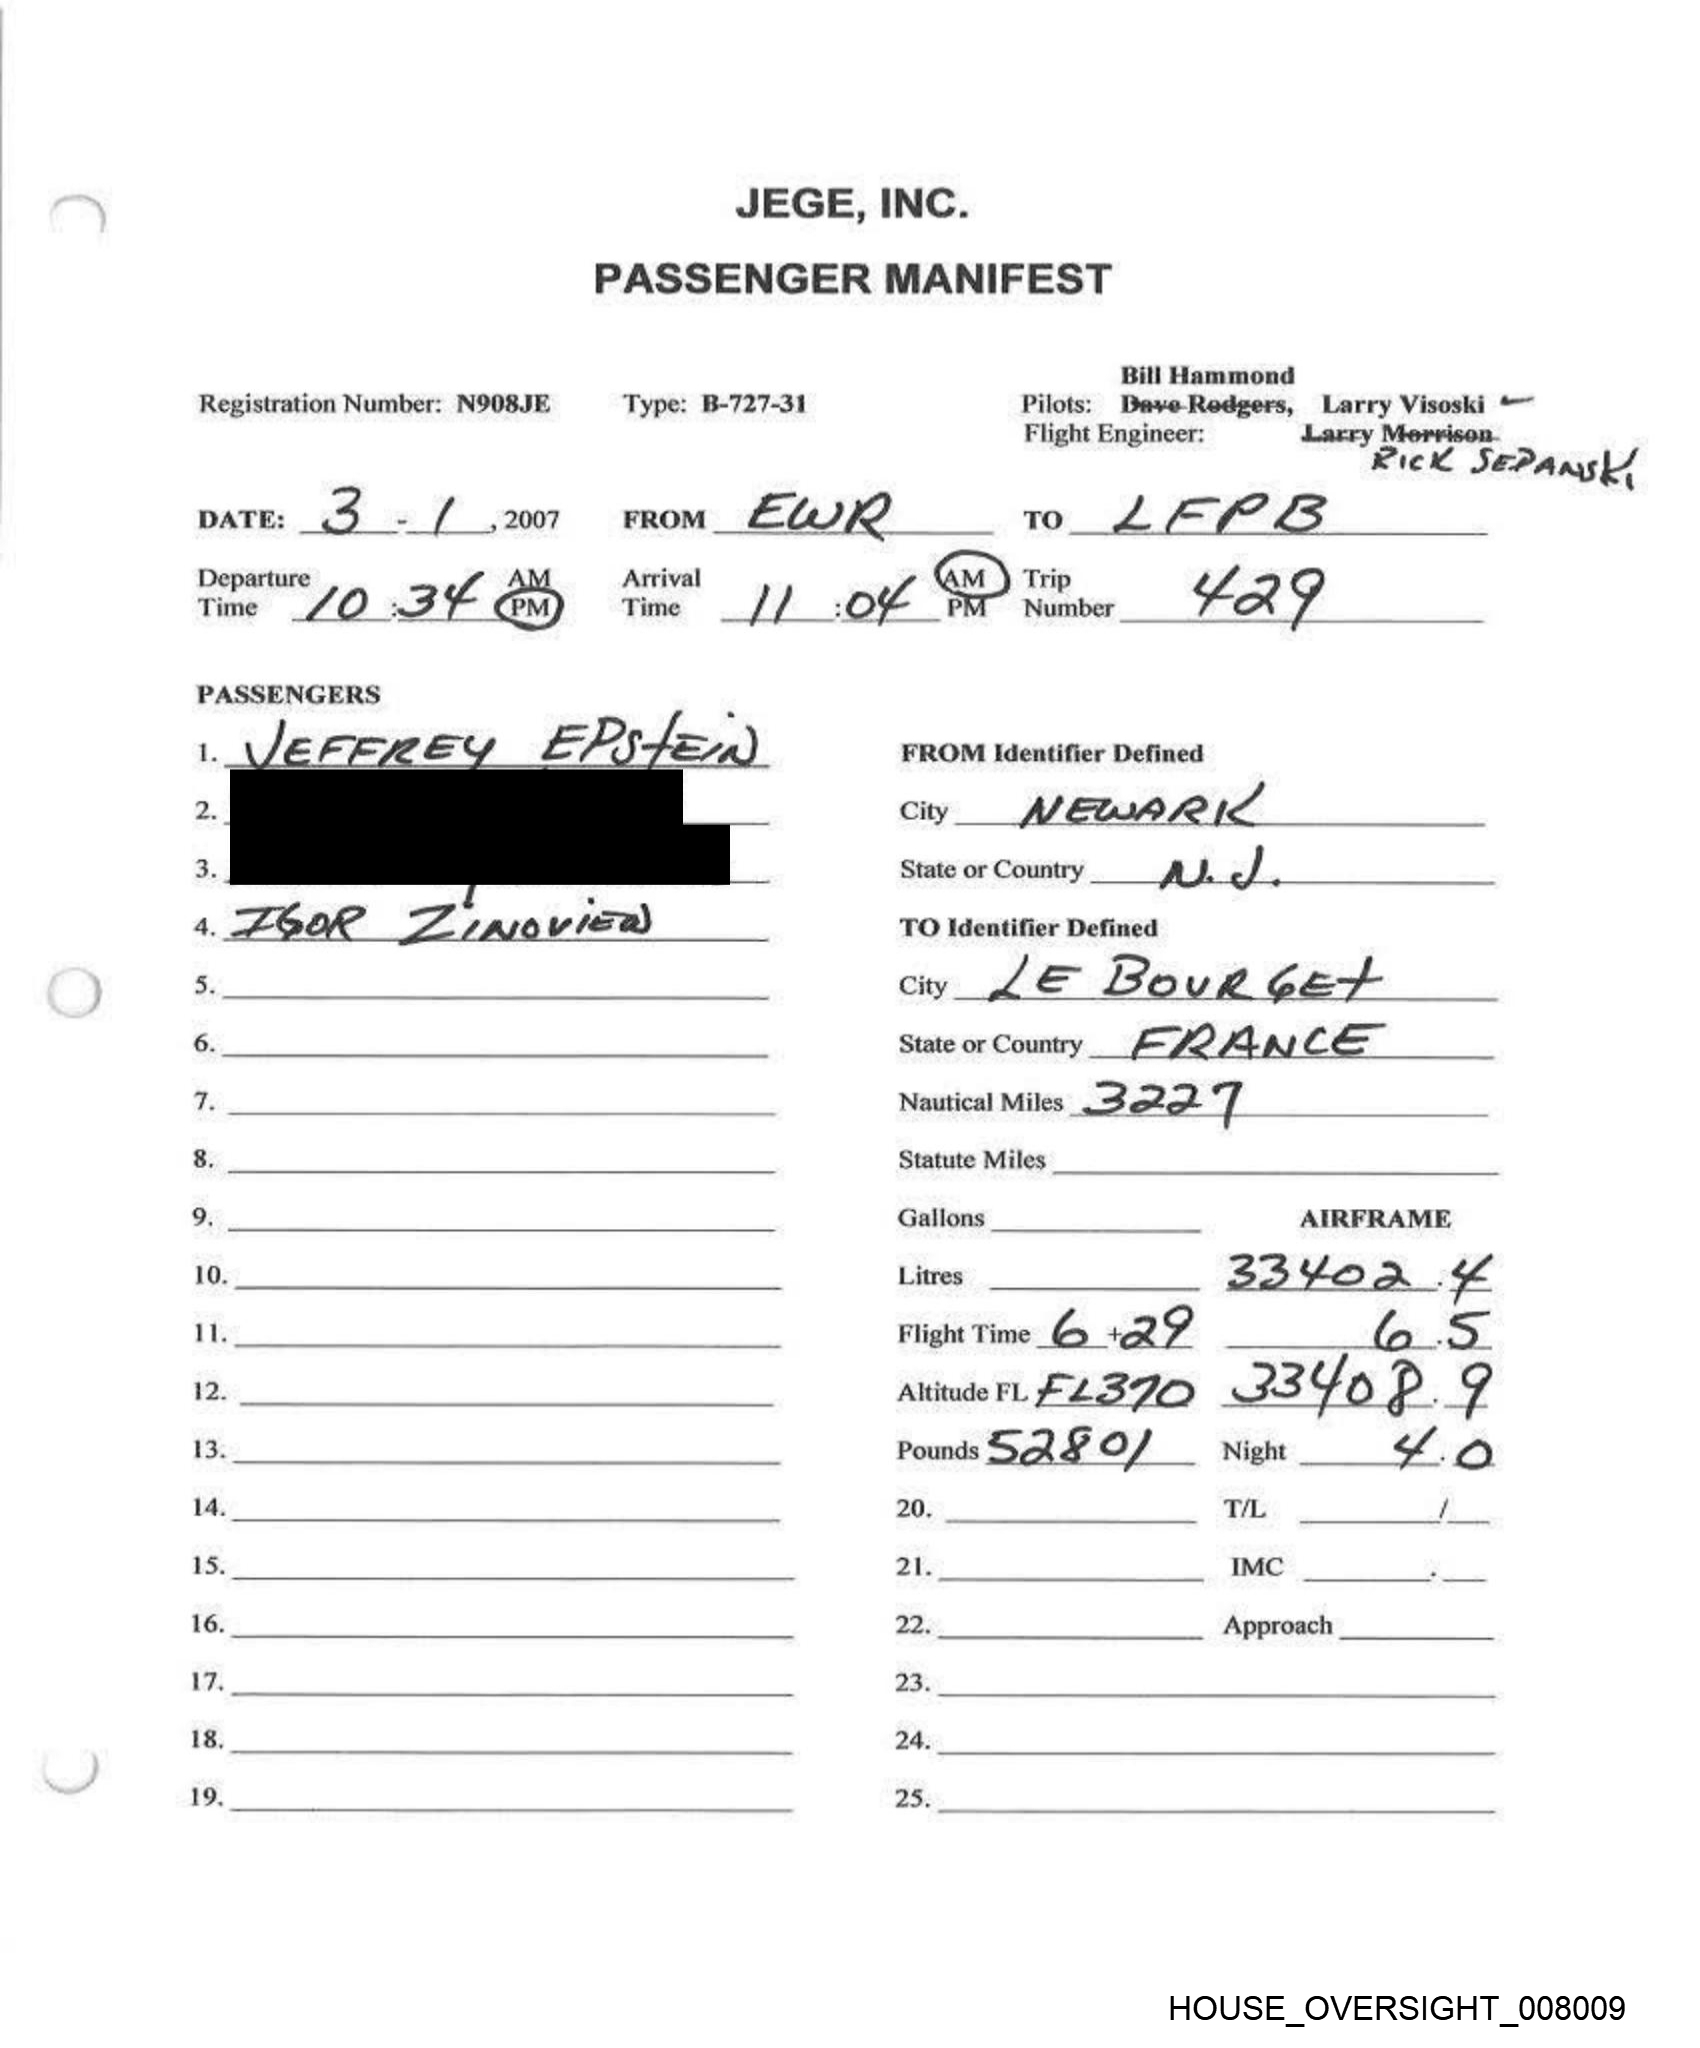 JEGE, INC.
PASSENGER MANIFEST
Bill Hammond
Registration Number: N908JE Type: B-727-31 Pilots: Dave Rodgers, Larry Visoski
Flight Engineer: Larry Morrison
RICK SEPANSKI
DATE: 3 - 1, 2007 FROM EWR TO LFPB
Departure Time 10:34 AM PM Arrival Time 11:04 AM PM Trip Number 429
PASSENGERS
1. JEFFREY EPStEIN
FROM Identifier Defined
2.
City NEWARK
3.
State or Country N.J.
4. IGOR ZINOVIEW
TO Identifier Defined
5.
City LE BOURGEt
6.
State or Country FRANCE
7.
Nautical Miles 3227
8.
Statute Miles
9.
Gallons AIRFRAME
10.
Litres 33402.4
11.
Flight Time 6+29 6.5
12.
Altitude FL FL370 33408.9
13.
Pounds 52801 Night 4.0
14.
20. T/L /
15.
21. IMC .
16.
22. Approach
17.
23.
18.
24.
19.
25.
HOUSE_OVERSIGHT_008009